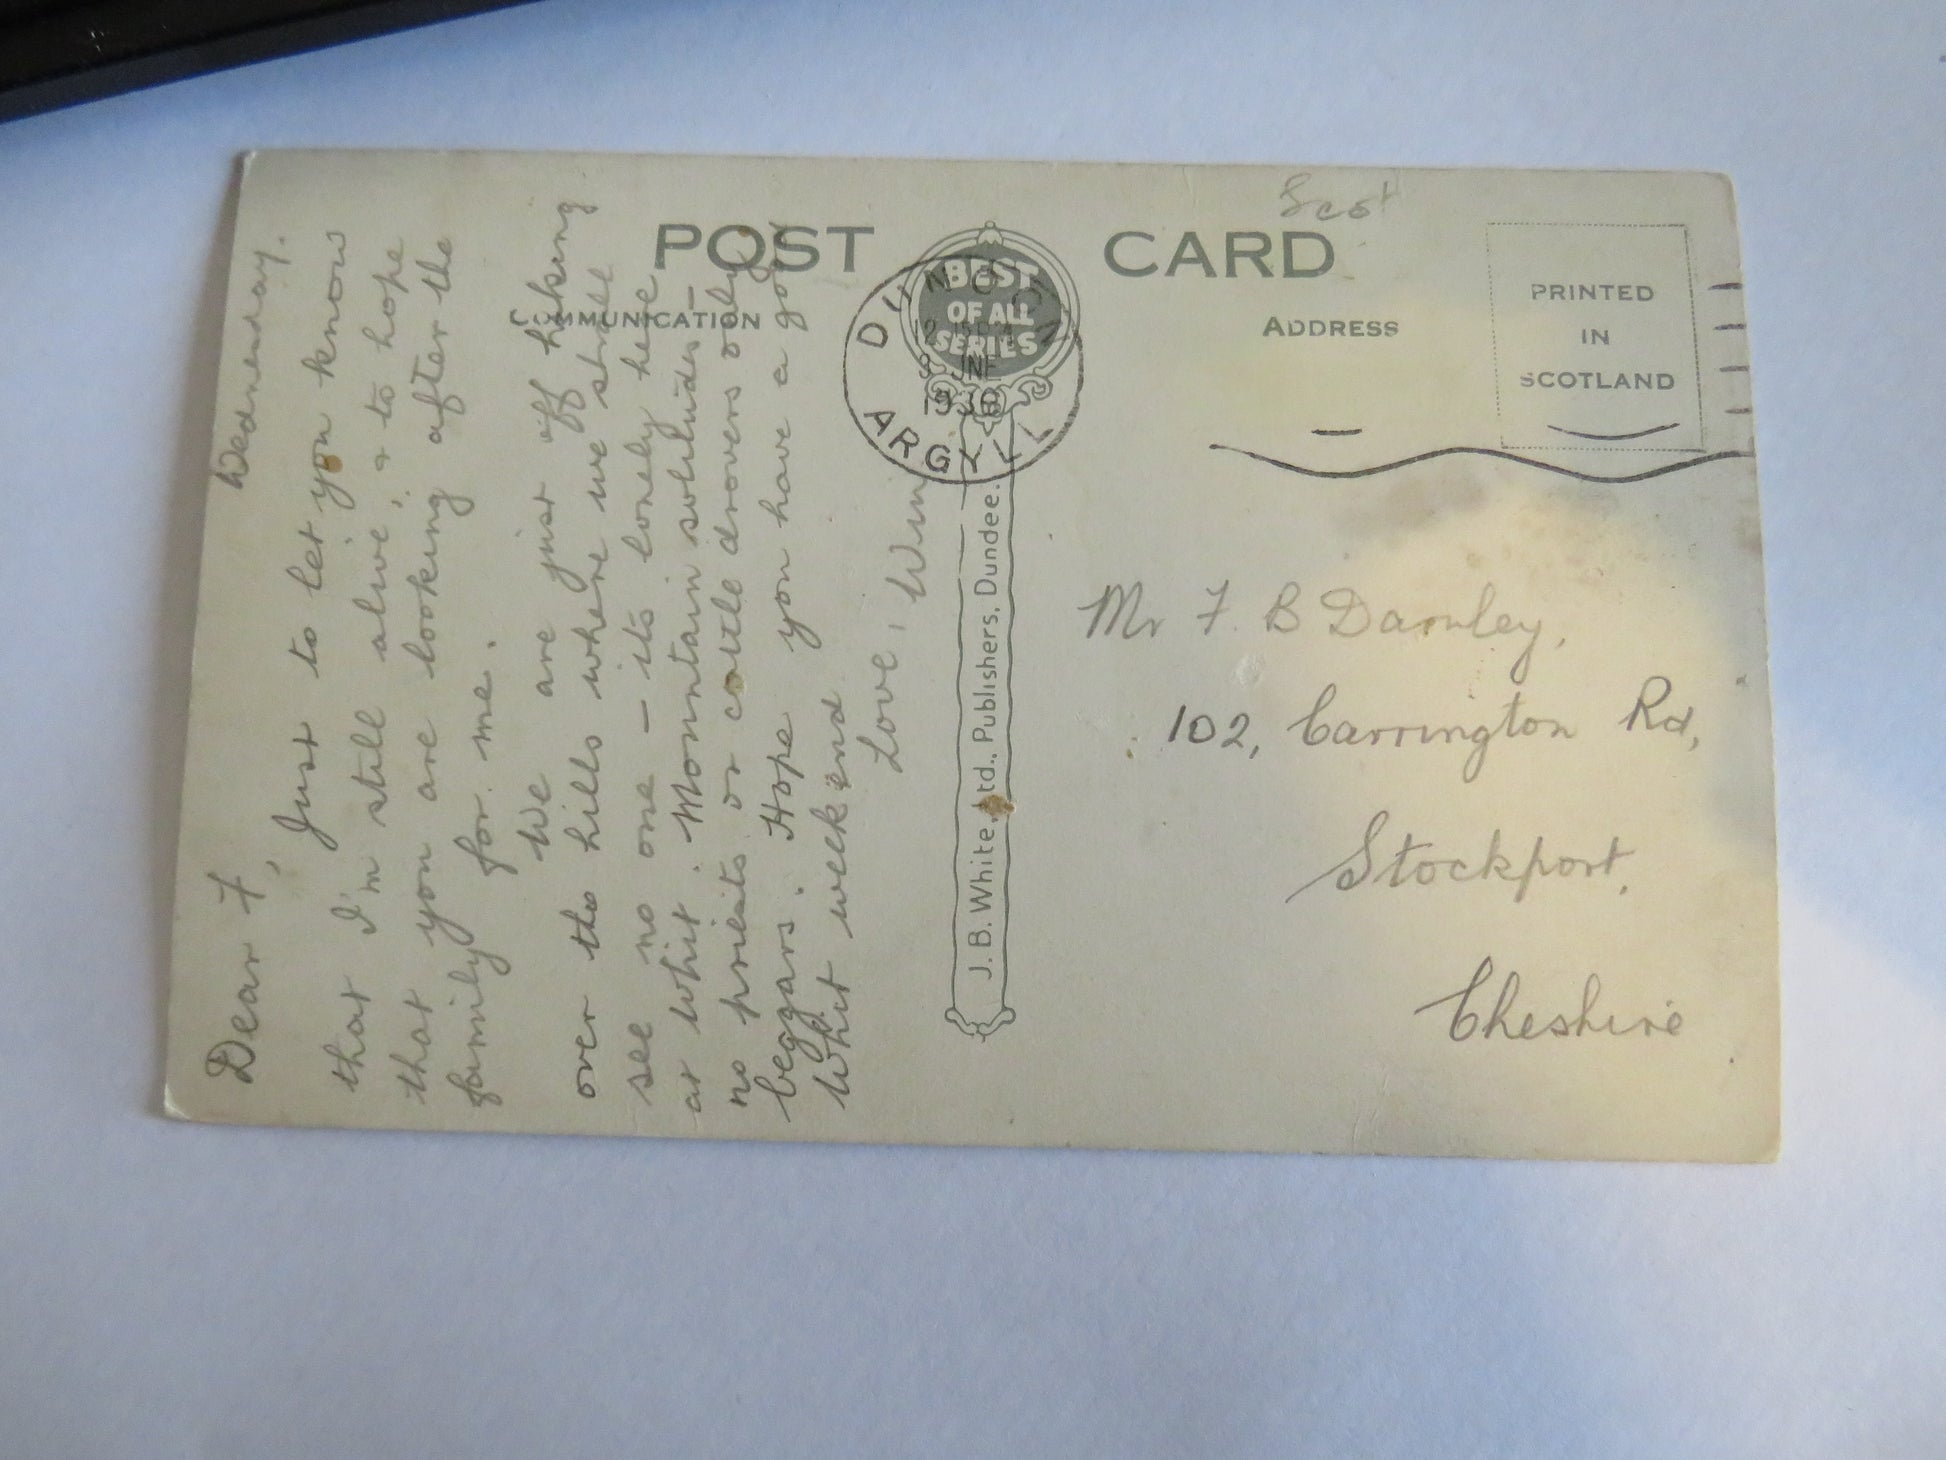 POST CARD
Scot
BEST
OF ALL
SERIES
COMMUNICATION
ADDRESS
PRINTED
IN
SCOTLAND
DUNOON
3 JNE
1936
ARGYLL
J. B. White, Ltd., Publishers, Dundee.
Wednesday.
Dear F,
Just to let you know
that I'm still alive, & to hope
that you are looking after the
family for me.
We are just off hiking
over the hills where we shall
see no one - its lonely here
at Whit. Mountain solitudes -
no priests or cattle drovers only
beggars. Hope you have a good
Whit weekend
Love, Win
Mr F. B Darnley,
102, Carrington Rd,
Stockport,
Cheshire